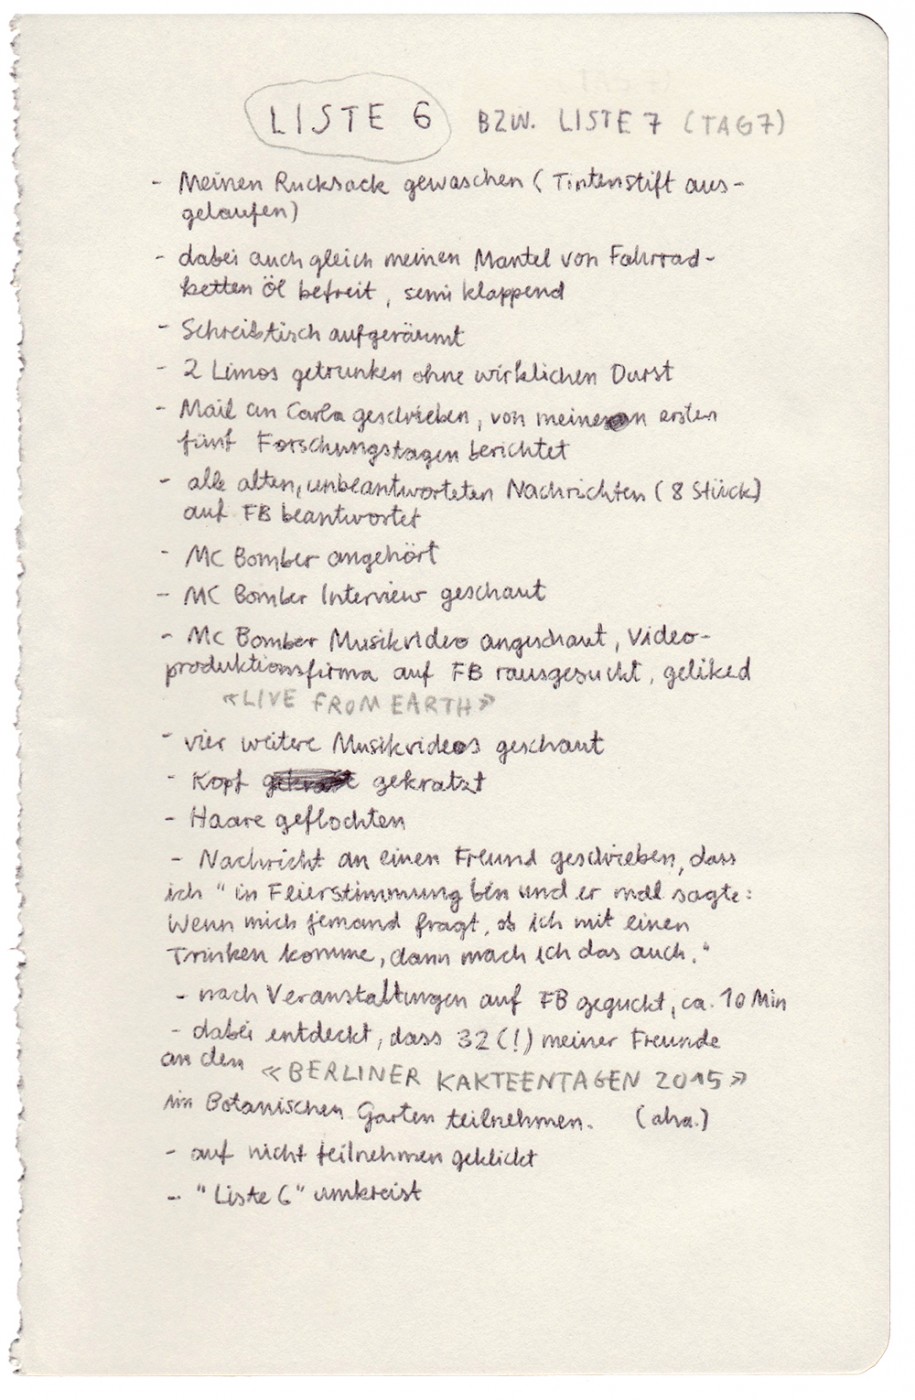 LISTE 6 BZW. LISTE 7 (TAG 7)
- Meinen Rucksack gewaschen (Tintenstift aus-
gelaufen)
- dabei auch gleich meinen Mantel von Fahrrad-
ketten Öl befreit, semi klappend
- Schreibtisch aufgeräumt
- 2 Limos getrunken ohne wirklichen Durst
- Mail an Carla geschrieben, von meinen ersten
fünf Forschungstagen berichtet
- alle alten, unbeantworteten Nachrichten (8 Stück)
auf FB beantwortet
- MC Bomber angehört
- MC Bomber Interview geschaut
- MC Bomber Musikvideo angeschaut, Video-
produktionsfirma auf FB rausgesucht, geliked
«LIVE FROM EARTH»
- vier weitere Musikvideos geschaut
- Kopf gekratzt
- Haare geflochten
- Nachricht an einen Freund geschrieben, dass
ich "in Feierstimmung bin und er mal sagte:
Wenn mich jemand fragt, ob ich mit einen
Trinken komme, dann mach ich das auch."
- nach Veranstaltungen auf FB geguckt, ca. 10 Min
- dabei entdeckt, dass 32 (!) meiner Freunde
an den «BERLINER KAKTEENTAGEN 2015»
im Botanischen Garten teilnehmen. (aha.)
- auf nicht teilnehmen geklickt
- "Liste 6" umkreist